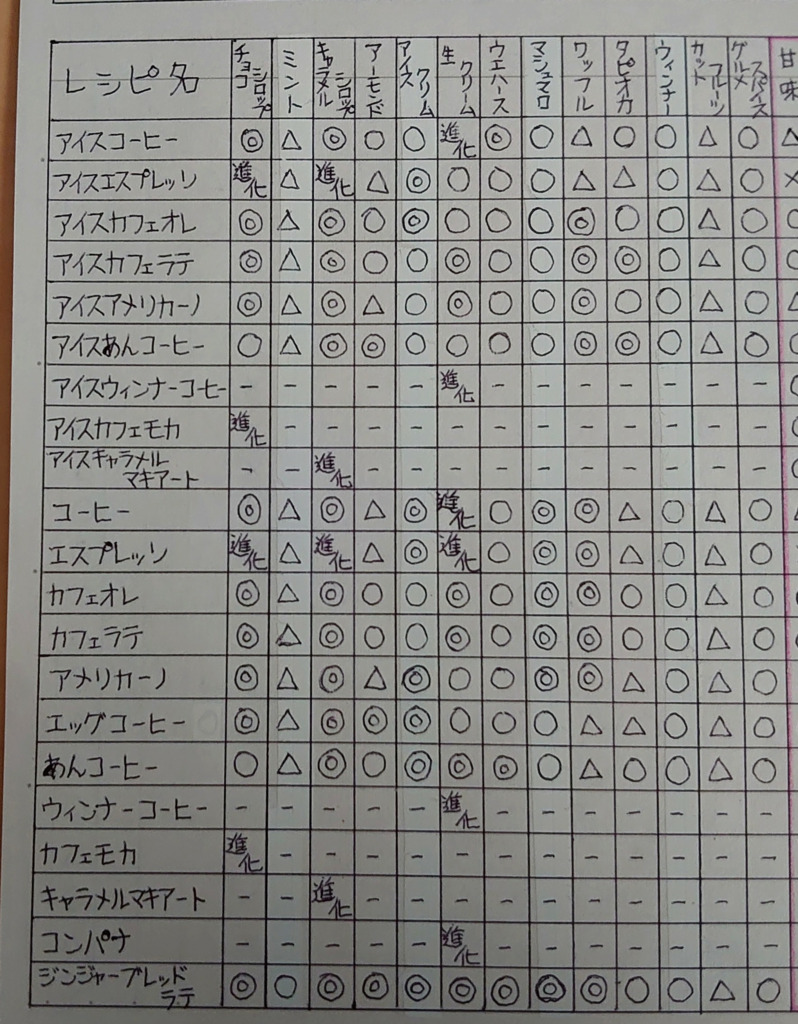 レシピ名 チョコシロップ ミント キャラメルシロップ アーモンド アイスクリーム 生クリーム ウエハース マシュマロ ワッフル タピオカ ウィンナー カットフルーツ グルメスパイス 甘味
アイスコーヒー ◎ △ ◎ ○ ○ 進化 ◎ ○ △ ○ ○ △ ○ △
アイスエスプレッソ 進化 △ 進化 △ ◎ ○ ○ ○ △ △ ○ △ ○ ×
アイスカフェオレ ◎ △ ◎ ○ ◎ ○ ○ ○ ◎ ○ ○ △ ○ ○
アイスカフェラテ ◎ △ ◎ ○ ○ ◎ ○ ○ ◎ ◎ ○ △ ○ ○
アイスアメリカーノ ◎ △ ◎ △ ○ ◎ ○ ○ ◎ ○ ○ △ ○ △
アイスあんコーヒー ○ △ ◎ ◎ ○ ○ ○ ○ ◎ ◎ ○ △ ○ ○
アイスウィンナーコーヒー - - - - - 進化 - - - - - - -
アイスカフェモカ 進化 - - - - - - - - - - - -
アイスキャラメルマキアート - - 進化 - - - - - - - - - -
コーヒー ◎ △ ◎ △ ◎ 進化 ○ ◎ ◎ △ ○ △ ○
エスプレッソ 進化 △ 進化 △ ◎ 進化 ○ ◎ ◎ △ ○ △ ○
カフェオレ ◎ △ ◎ ○ ○ ◎ ○ ◎ ◎ ○ ○ △ ○
カフェラテ ◎ △ ◎ ○ ○ ◎ ○ ◎ ◎ ○ ○ △ ○
アメリカーノ ◎ △ ◎ △ ◎ ○ ○ ◎ ◎ △ ○ △ ○
エッグコーヒー ◎ △ ◎ ◎ ◎ ○ ○ ○ △ △ ○ △ ○
あんコーヒー ○ △ ◎ ○ ◎ ◎ ◎ ○ △ ○ ○ △ ○
ウィンナーコーヒー - - - - - 進化 - - - - - - -
カフェモカ 進化 - - - - - - - - - - - -
キャラメルマキアート - - 進化 - - - - - - - - - -
コンパナ - - - - - 進化 - - - - - - -
ジンジャーブレッドラテ ◎ ○ ◎ ◎ ◎ ◎ ◎ ◎ ◎ ○ ○ △ ○